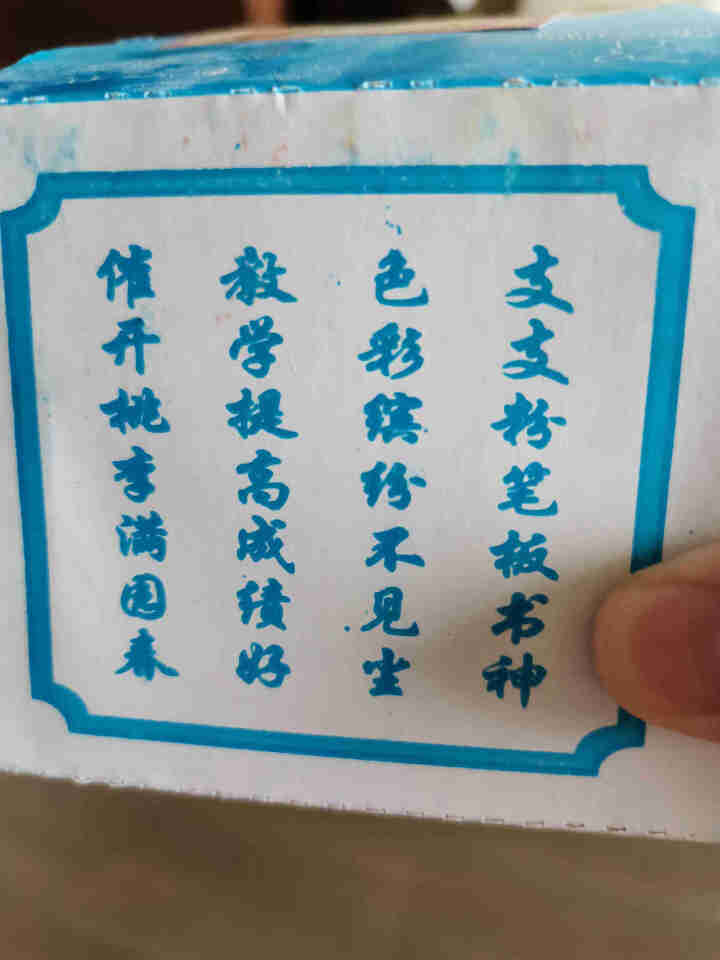 支支粉笔板书神
色彩缤纷不见尘
教学提高成绩好
催开桃李满园春